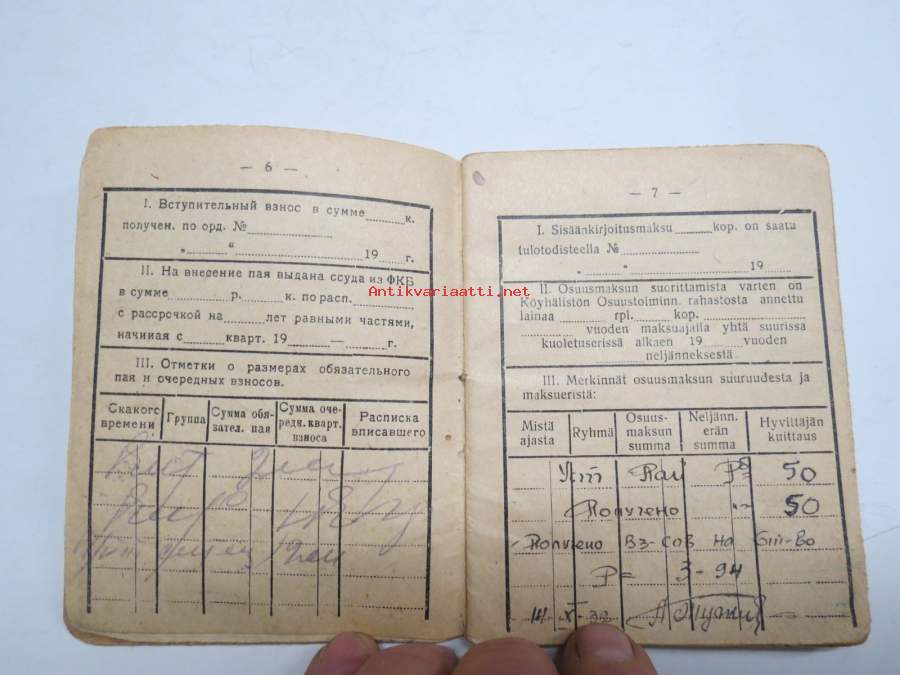 — 6 —
I. Вступительный взнос в сумме к.
получен. по орд. №
„ “ 19 г.
II. На внерение пая выдана ссуда из ФКБ
в сумме р. к. по расп.
с рассрочкой на лет равными частями,
начиная с кварт. 19 — г.
III. Отметки о размерах обязательного
пая и очередных взносов.
Скакого времени
Группа
Сумма обязател. пая
Сумма очередн. кварт. взноса
Расписка вписавшего
— 7 —
I. Sisäänkirjoitusmaksu kop. on saatu
tulotodisteella №
„ “ 19
II. Osuusmaksun suorittamista varten on
Köyhälistön Osuustoiminn. rahastosta annettu
lainaa rpl. kop.
vuoden maksuajalla yhtä suurissa
kuoletuserissä alkaen 19 vuoden
neljänneksestä
III. Merkinnät osuusmaksun suuruudesta ja
maksueristä:
Mistä ajasta
Ryhmä
Osuusmaksun summa
Neljänn. erän summa
Hyvittäjän kuittaus
Пай 50
Получено 50
Получено на
Р= 3-94
Antikvariaatti.net